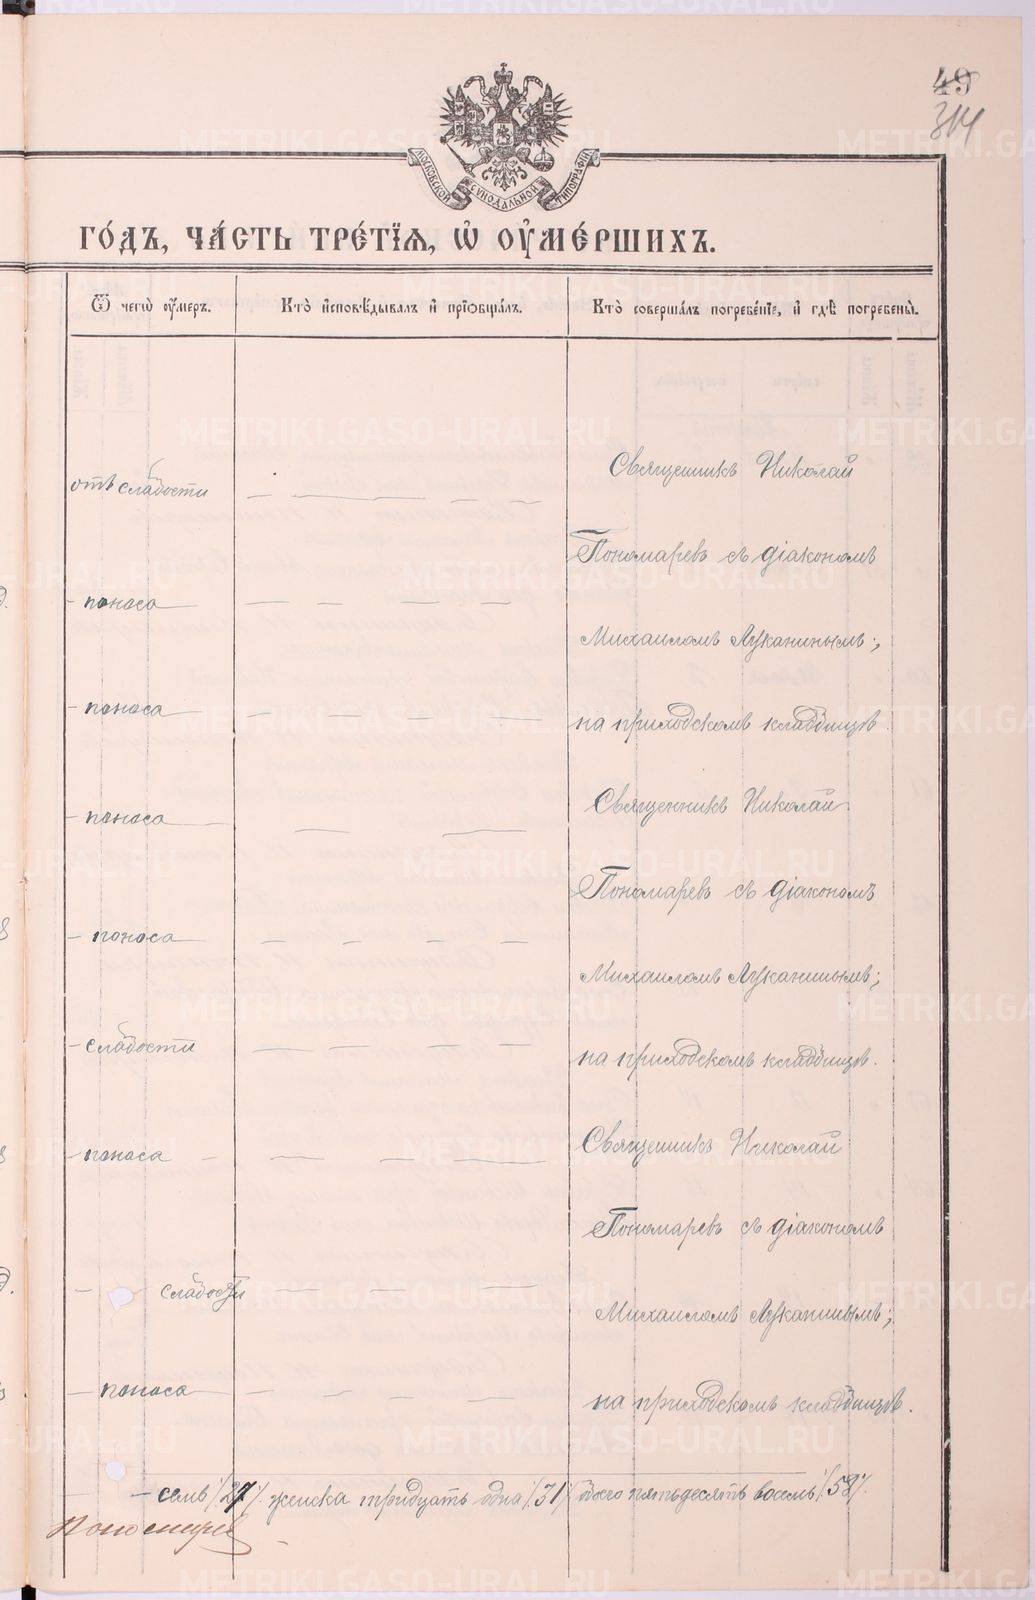 49
314
МОСКОВСКОЙ СѴНОДАЛЬНОЙ ТИПОГРАФІИ
ГО́ДЪ, ЧА́СТЬ ТРЕ́ТЇѦ, Ѡ҆ ОУ҆МЕ́РШИХЪ.
Ѿ чегѡ̀ оу҆́меръ.
Кто̀ и҆сповѣ́дывалъ и҆ прїѡбща́лъ.
Кто̀ соверша́лъ погребе́нїе, и҆ гдѣ̀ погребены̀.
Священникъ Николай
отъ слабости
Пономаревъ съ діакономъ
- поноса
Михаиломъ Луканинымъ;
- поноса
на приходскомъ кладбищѣ.
Священникъ Николай
- поноса
Пономаревъ съ діакономъ
- поноса
Михаиломъ Луканинымъ;
- слабости
на приходскомъ кладбищѣ.
Священникъ Николай
- поноса
Пономаревъ съ діакономъ
- слабости
Михаиломъ Луканинымъ;
- поноса
на приходскомъ кладбищѣ.
- семь /27/. женска тридцать одна /31/ всего пятьдесятъ восемь /58/.
METRIKI.GASO-URAL.RU